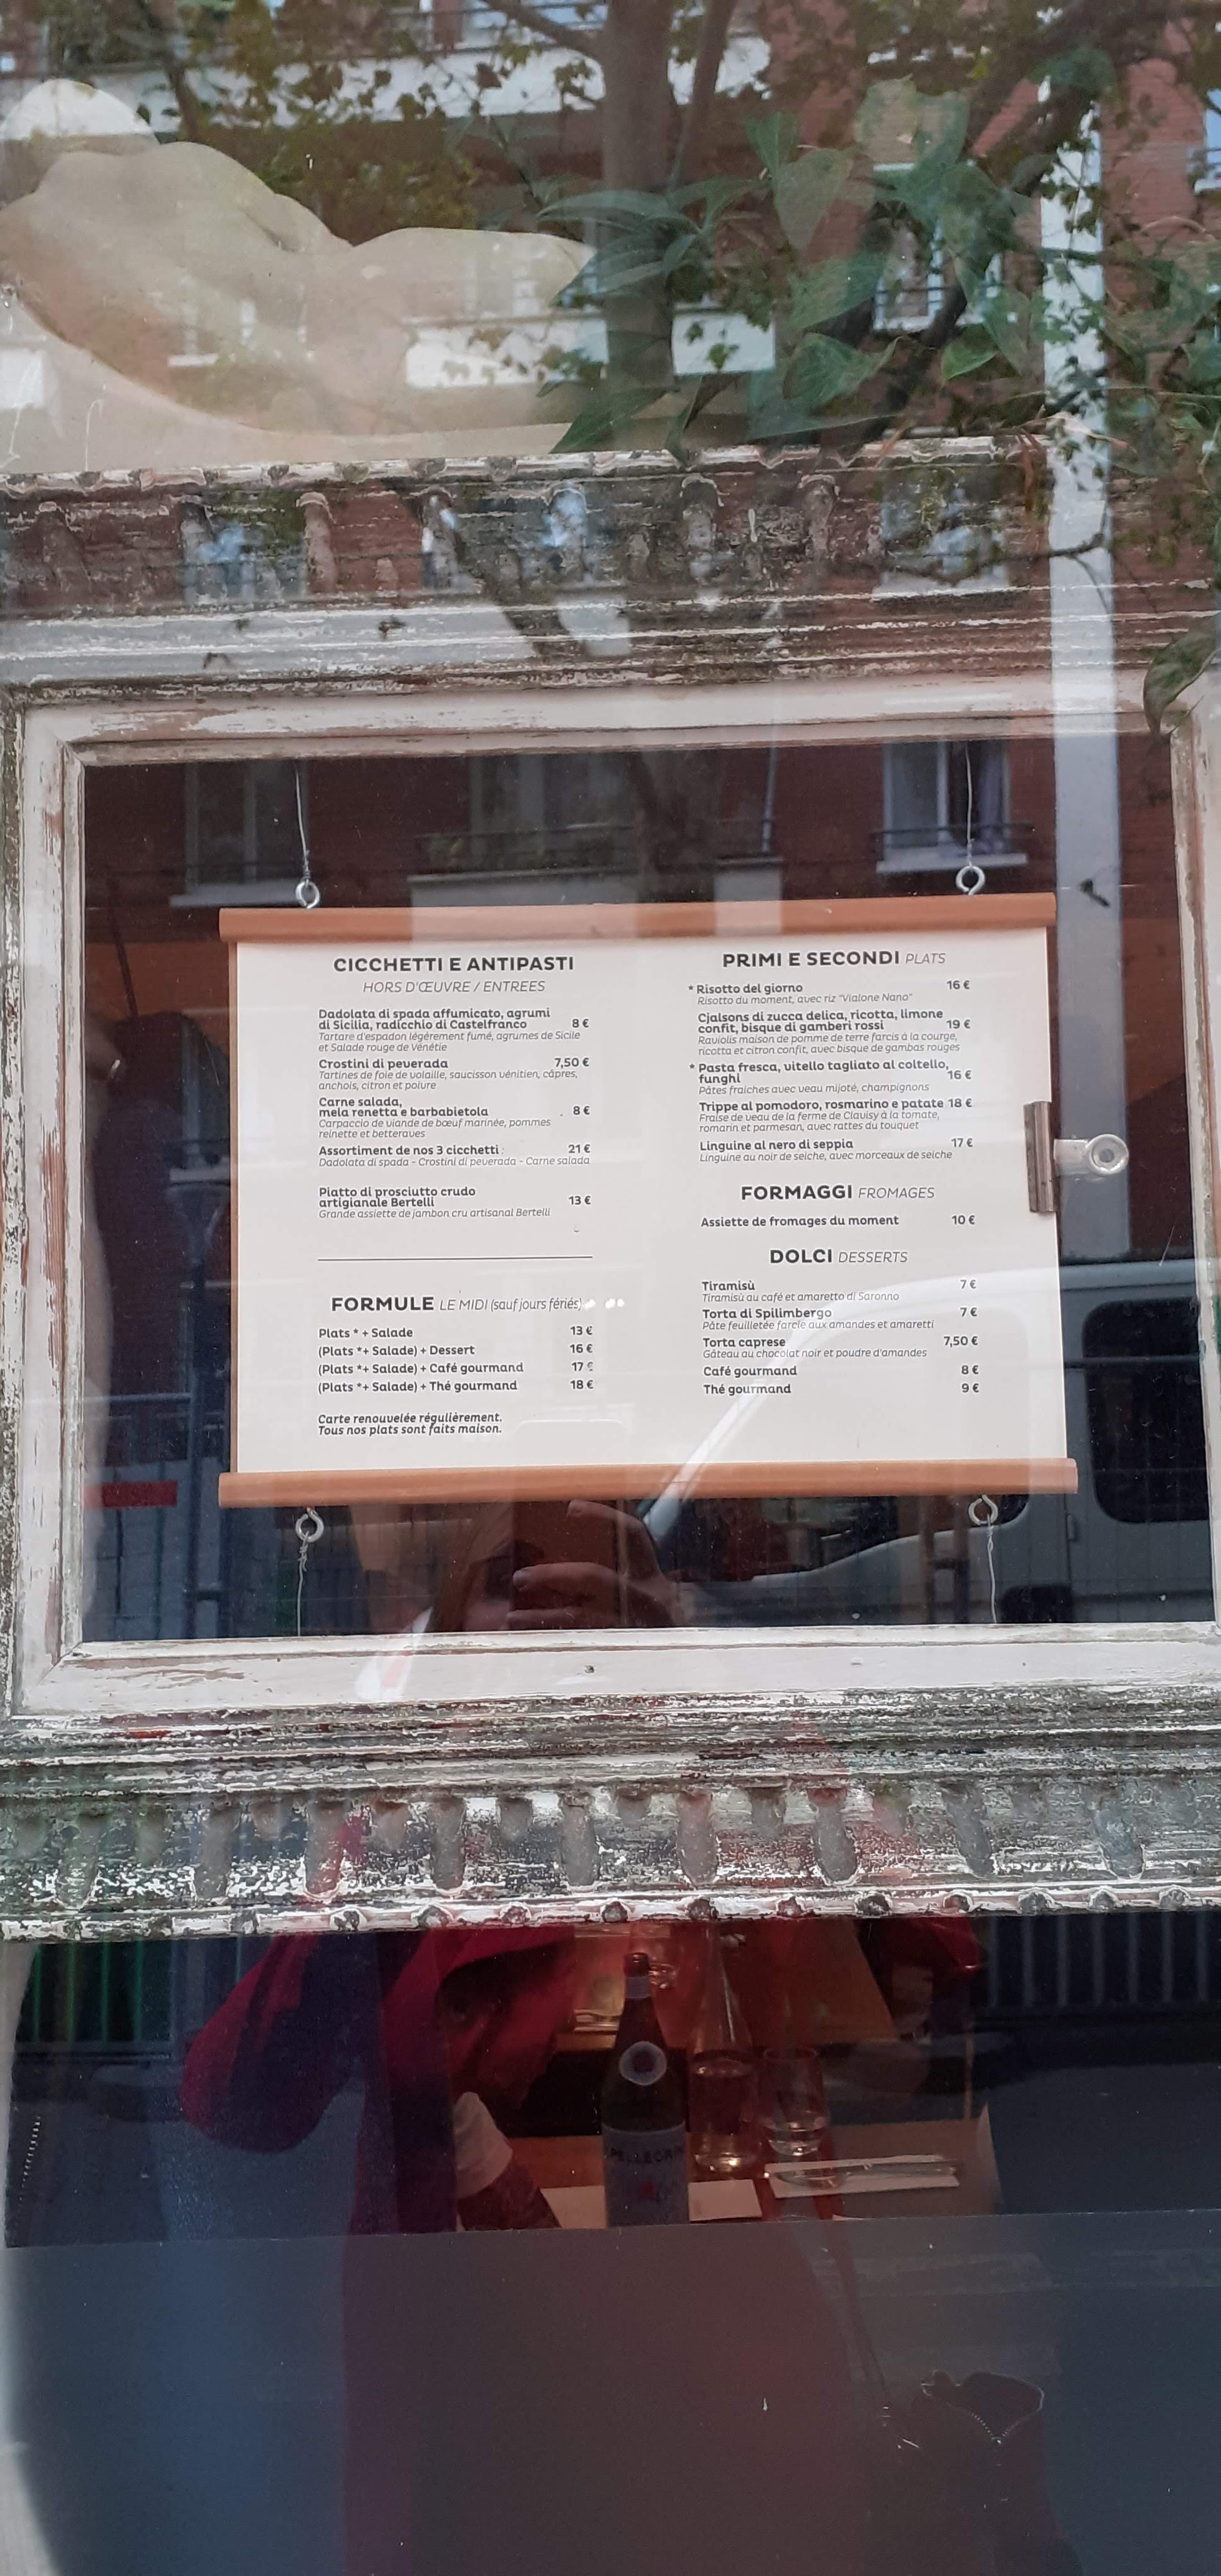 CICCHETTI E ANTIPASTI
HORS D'ŒUVRE / ENTREES
Dadolata di spada affumicato, agrumi
di Sicilia, radicchio di Castelfranco 8 €
Tartare d'espadon légèrement fumé, agrumes de Sicile
et Salade rouge de Vénétie
Crostini di peverada 7,50 €
Tartines de foie de volaille, saucisson vénitien, câpres,
anchois, citron et poivre
Carne salada,
mela renetta e barbabietola 8 €
Carpaccio de viande de bœuf marinée, pommes
reinette et betteraves
Assortiment de nos 3 cicchetti : 21 €
Dadolata di spada - Crostini di peverada - Carne salada
Piatto di prosciutto crudo
artigianale Bertelli 13 €
Grande assiette de jambon cru artisanal Bertelli
FORMULE LE MIDI (sauf jours fériés)
Plats * + Salade 13 €
(Plats *+ Salade) + Dessert 16 €
(Plats *+ Salade) + Café gourmand 17 €
(Plats *+ Salade) + Thé gourmand 18 €
Carte renouvelée régulièrement.
Tous nos plats sont faits maison.
PRIMI E SECONDI PLATS
* Risotto del giorno 16 €
Risotto du moment, avec riz "Vialone Nano"
Cjalsons di zucca delica, ricotta, limone
confit, bisque di gamberi rossi 19 €
Raviolis maison de pomme de terre farcis à la courge,
ricotta et citron confit, avec bisque de gambas rouges
* Pasta fresca, vitello tagliato al coltello,
funghi 16 €
Pâtes fraiches avec veau mijoté, champignons
Trippe al pomodoro, rosmarino e patate 18 €
Fraise de veau de la ferme de Clavisy à la tomate,
romarin et parmesan, avec rattes du touquet
Linguine al nero di seppia 17 €
Linguine au noir de seiche, avec morceaux de seiche
FORMAGGI FROMAGES
Assiette de fromages du moment 10 €
DOLCI DESSERTS
Tiramisù 7 €
Tiramisù au café et amaretto di Saronno
Torta di Spilimbergo 7 €
Pâte feuilletée farcie aux amandes et amaretti
Torta caprese 7,50 €
Gâteau au chocolat noir et poudre d'amandes
Café gourmand 8 €
Thé gourmand 9 €